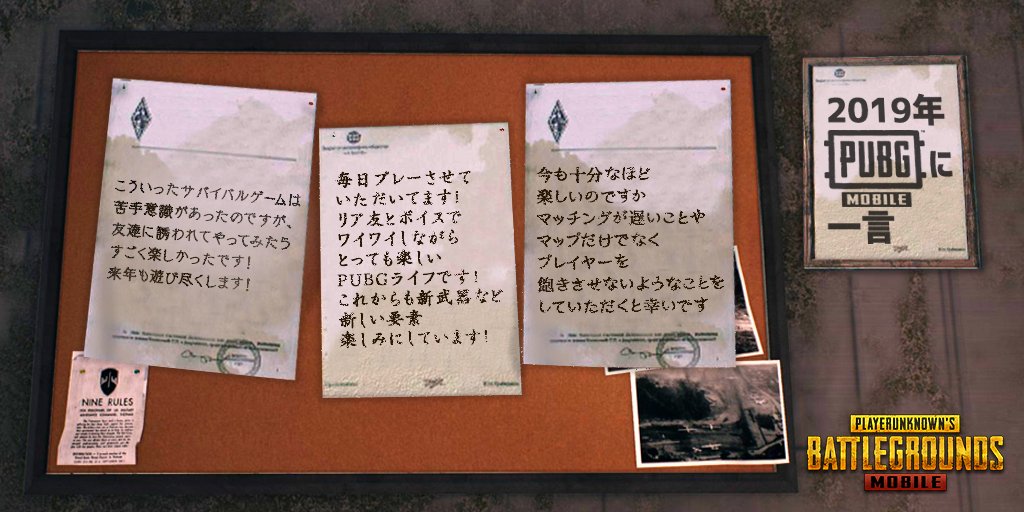 こういったサバイバルゲームは
苦手意識があったのですが、
友達に誘われてやってみたら
すごく楽しかったです!
来年も遊び尽くします!
毎日プレーさせて
いただいてます!
リア友とボイスで
ワイワイしながら
とっても楽しい
PUBGライフです!
これからも新武器など
新しい要素
楽しみにしています!
今も十分なほど
楽しいのですか
マッチングが遅いことや
マップだけでなく
プレイヤーを
飽きさせないようなことを
していただくと幸いです
2019年
PUBGに
MOBILE
一言
NINE RULES
PLAYERUNKNOWN'S
BATTLEGROUNDS
MOBILE